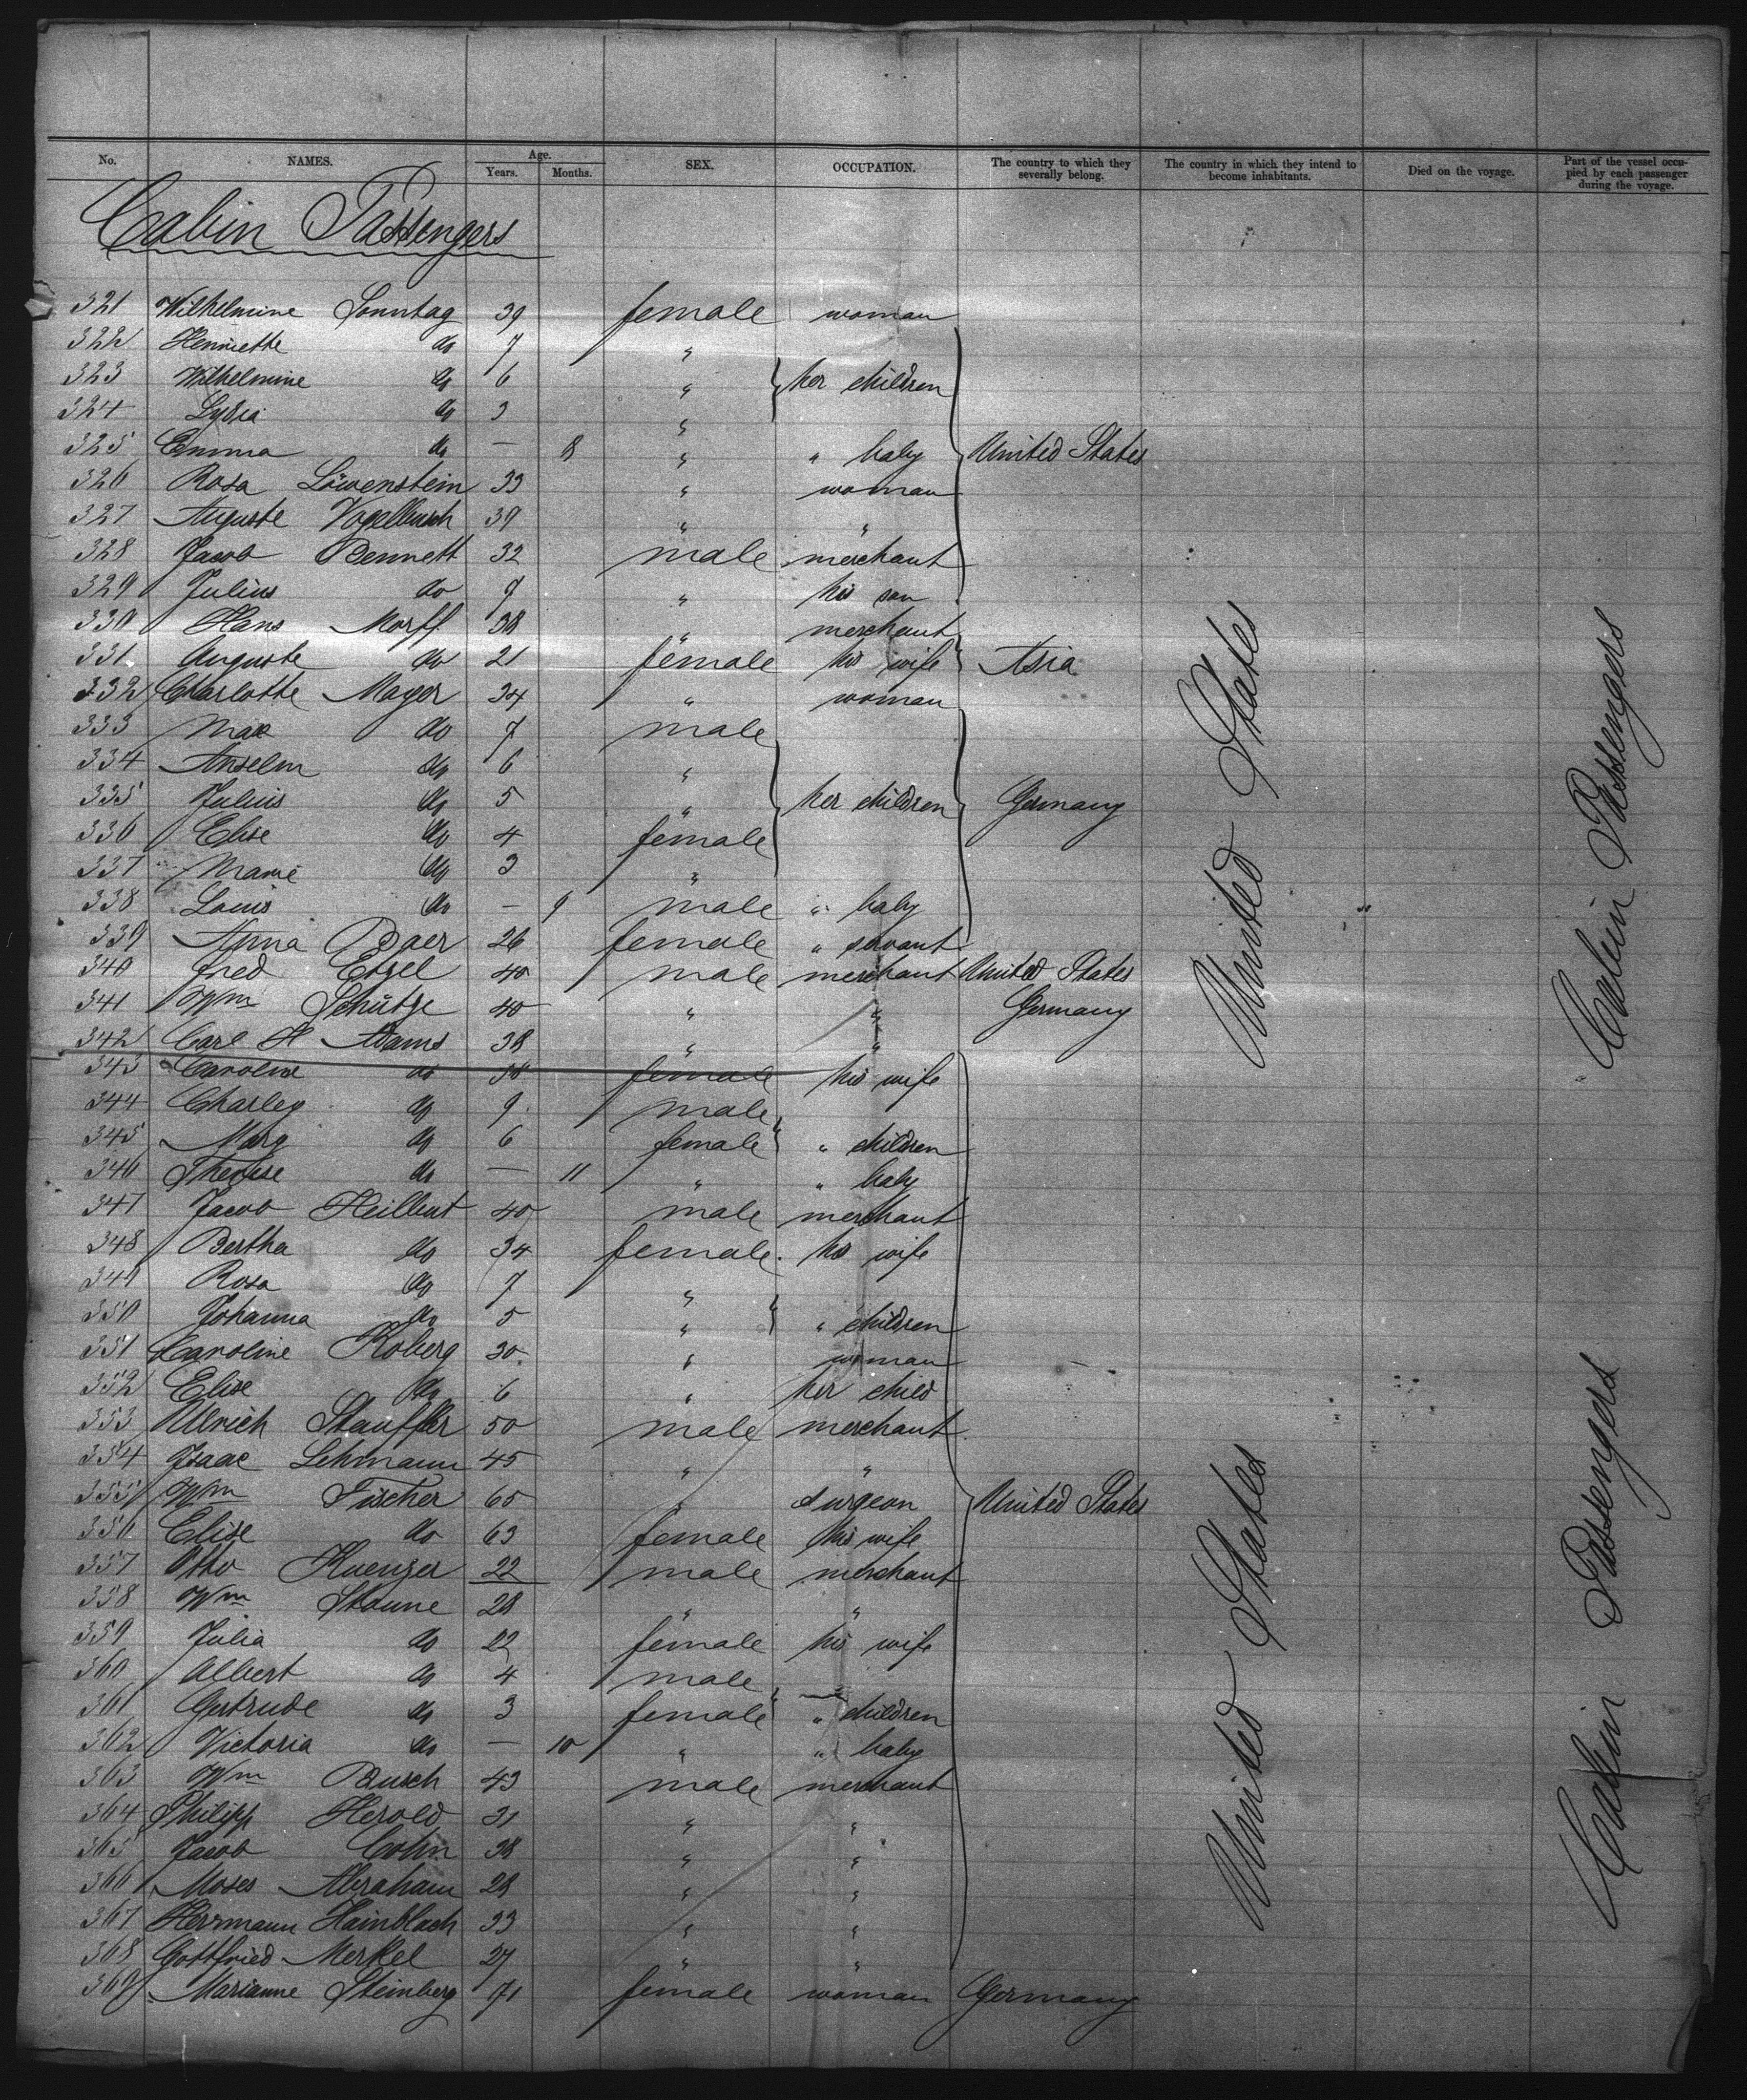 No. NAMES. Age. Years. Months. SEX. OCCUPATION. The country to which they severally belong. The country in which they intend to become inhabitants. Died on the voyage. Part of the vessel occupied by each passenger during the voyage.
Cabin Passengers
321 Wilhelmine Sonntag 39 female woman
322 Henriette do 7 "
323 Wilhelmine do 6 " her children
324 Lydia do 3 "
325 Emma do — 8 " " baby United States
326 Rosa Löwenstein 33 " woman
327 Auguste Vogelbusch 39 " "
328 Jacob Bennett 32 male merchant
329 Julius do 9 " his son
330 Hans Morff 38 " merchant
331 Auguste do 21 female his wife Asia
332 Charlotte Mayer 34 " woman
333 Max do 7 male
334 Anselm do 6 "
335 Julius do 5 " her children Germany
336 Elise do 4 female
337 Marie do 3 "
338 Louis do — 9 male " baby
339 Anna Baer 26 female " servant
340 Fred Engel 40 male merchant United States
341 Wm Schütze 40 " " Germany
342 Carl H Adams 38 " "
343 Caroline do 38 female his wife
344 Charley do 9 male
345 Marg do 6 female " children
346 Therese do — 11 " " baby
347 Jacob Heilbut 40 male merchant
348 Bertha do 34 female his wife
349 Rosa do 7 "
350 Johanna do 5 " " children
351 Caroline Koberg 30 " woman
352 Elise do 6 " her child
353 Ullrich Stauffer 50 male merchant
354 Isaac Lehmann 45 " "
355 Wm Fischer 65 " surgeon United States
356 Elise do 63 female his wife
357 Otto Kuenzer 22 male merchant
358 Wm Staune 28 " "
359 Julia do 22 female his wife
360 Albert do 4 male
361 Gertrude do 3 female " children
362 Victoria do — 10 " " baby
363 Wm Busch 43 male merchant
364 Philipp Herold 31 " "
365 Jacob Cohn 38 " "
366 Moses Abraham 28 " "
367 Herrmann Hainblach 33 " "
368 Gottfried Merkel 27 " "
369 Marianne Steinberg 71 female woman Germany
United States
United States
Cabin Passengers
Cabin Passengers